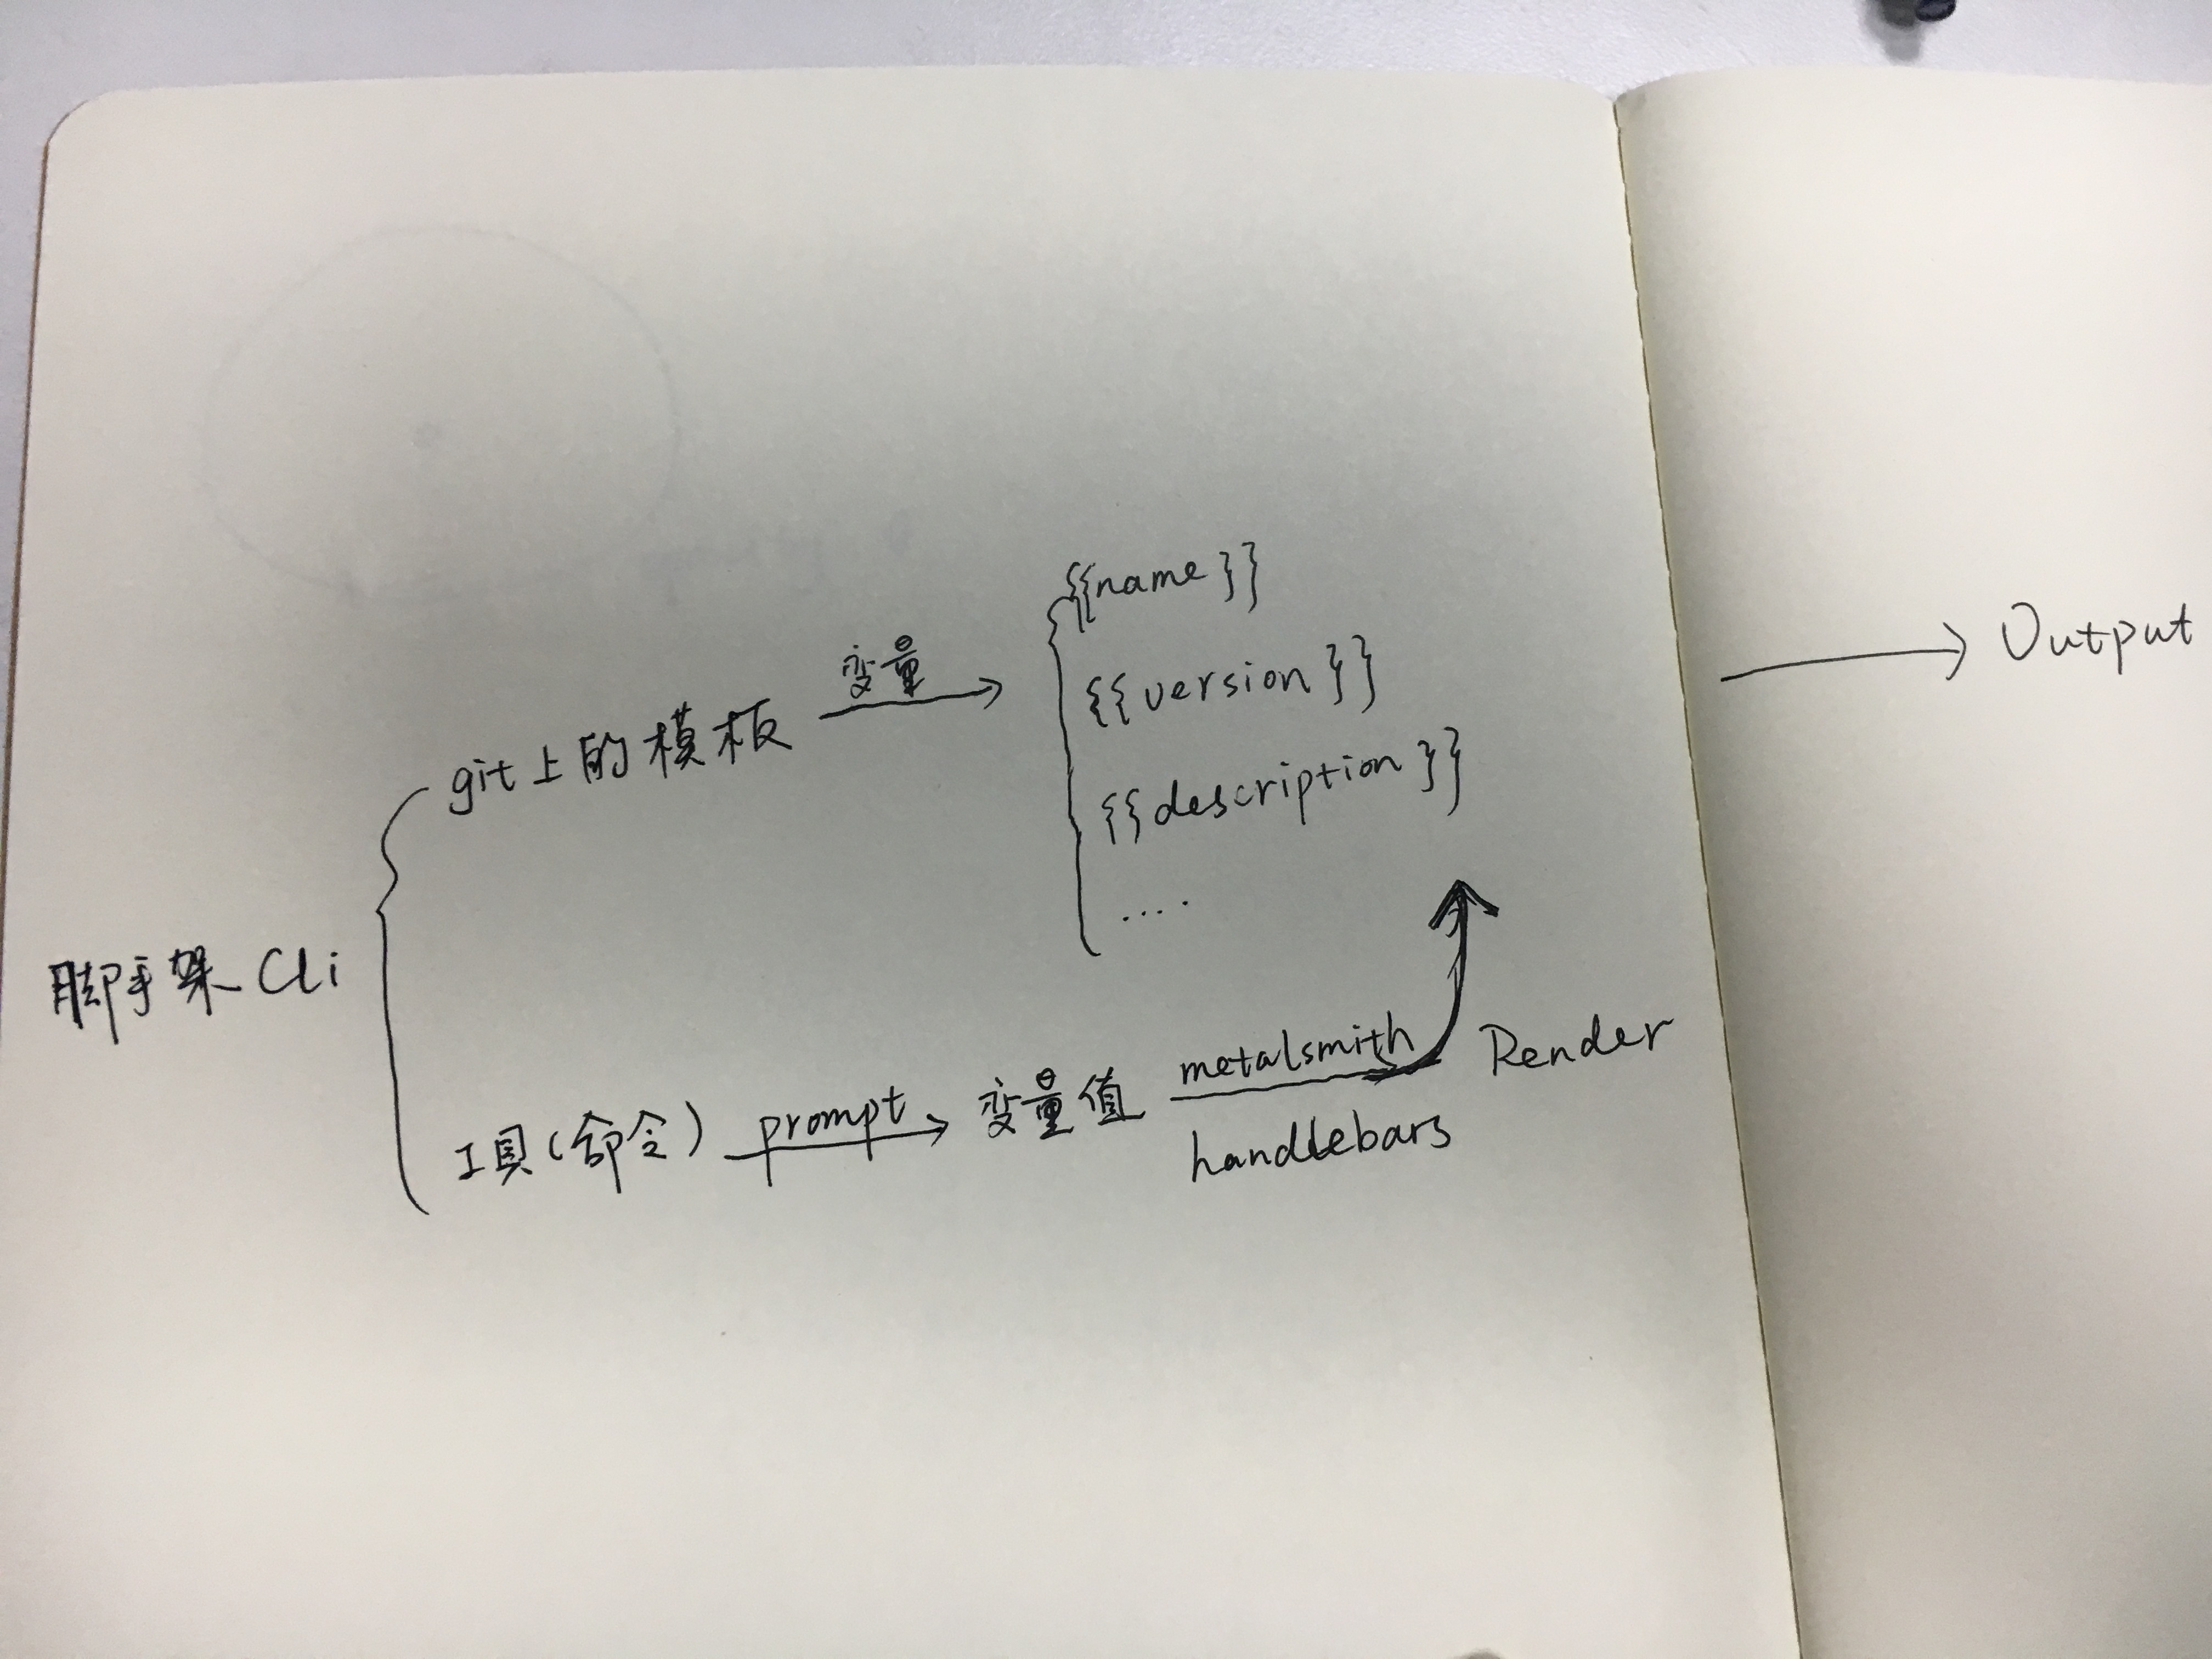 脚手架 Cli
git上的模板
变量
{{name}}
{{version}}
{{description}}
....
工具(命令)
prompt
变量值
metalsmith
handlebars
Render
Output